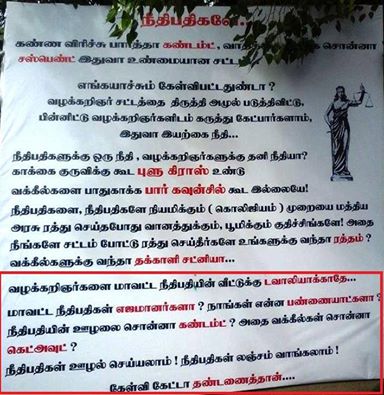 நீதிபதிகளே...
கண்ண விரிச்சு பார்த்தா கண்டம்ட், சொன்னா
சஸ்பெண்ட் இதுவா உண்மையான சட்ட
எங்கயாச்சும் கேள்விபட்டதுண்டா ?
வழக்கறிஞர் சட்டத்தை திருத்தி அமுல் படுத்திவிட்டு,
பின்னிட்டு வழக்கறிஞர்களிடம் கருத்து கேட்பார்களாம்,
இதுவா இயற்கை நீதி...
நீதிபதிகளுக்கு ஒரு நீதி , வழக்கறிஞர்களுக்கு தனி நீதியா?
காக்கை குருவிக்கு கூட புளு கிராஸ் உண்டு
வக்கீல்களை பாதுகாக்க பார் கவுன்சில் கூட இல்லையே!
நீதிபதிகளை, நீதிபதிகளே நியமிக்கும் ( கொலிஜியம் ) முறையை மத்திய
அரசு ரத்து செய்தபோது வானத்துக்கும், பூமிக்கும் குதிச்சிங்களே! அதை
நீங்களே சட்டம் போட்டு ரத்து செய்தீர்களே உங்களுக்கு வந்தா ரத்தம் ?
வக்கீல்களுக்கு வந்தா தக்காளி சட்னியா...
வழக்கறிஞர்களை மாவட்ட நீதிபதியின் வீட்டுக்கு டவாலியாக்காதே...
மாவட்ட நீதிபதிகள் எஜமானர்களா ? நாங்கள் என்ன பண்ணையாட்களா ?
நீதிபதியின் ஊழலை சொன்னா கண்டம்ட் ? அதை வக்கீல்கள் சொன்னா
கெட்அவுட் ?
நீதிபதிகள் ஊழல் செய்யலாம் ! நீதிபதிகள் லஞ்சம் வாங்கலாம் !
கேள்வி கேட்டா தண்டணைத்தான்....